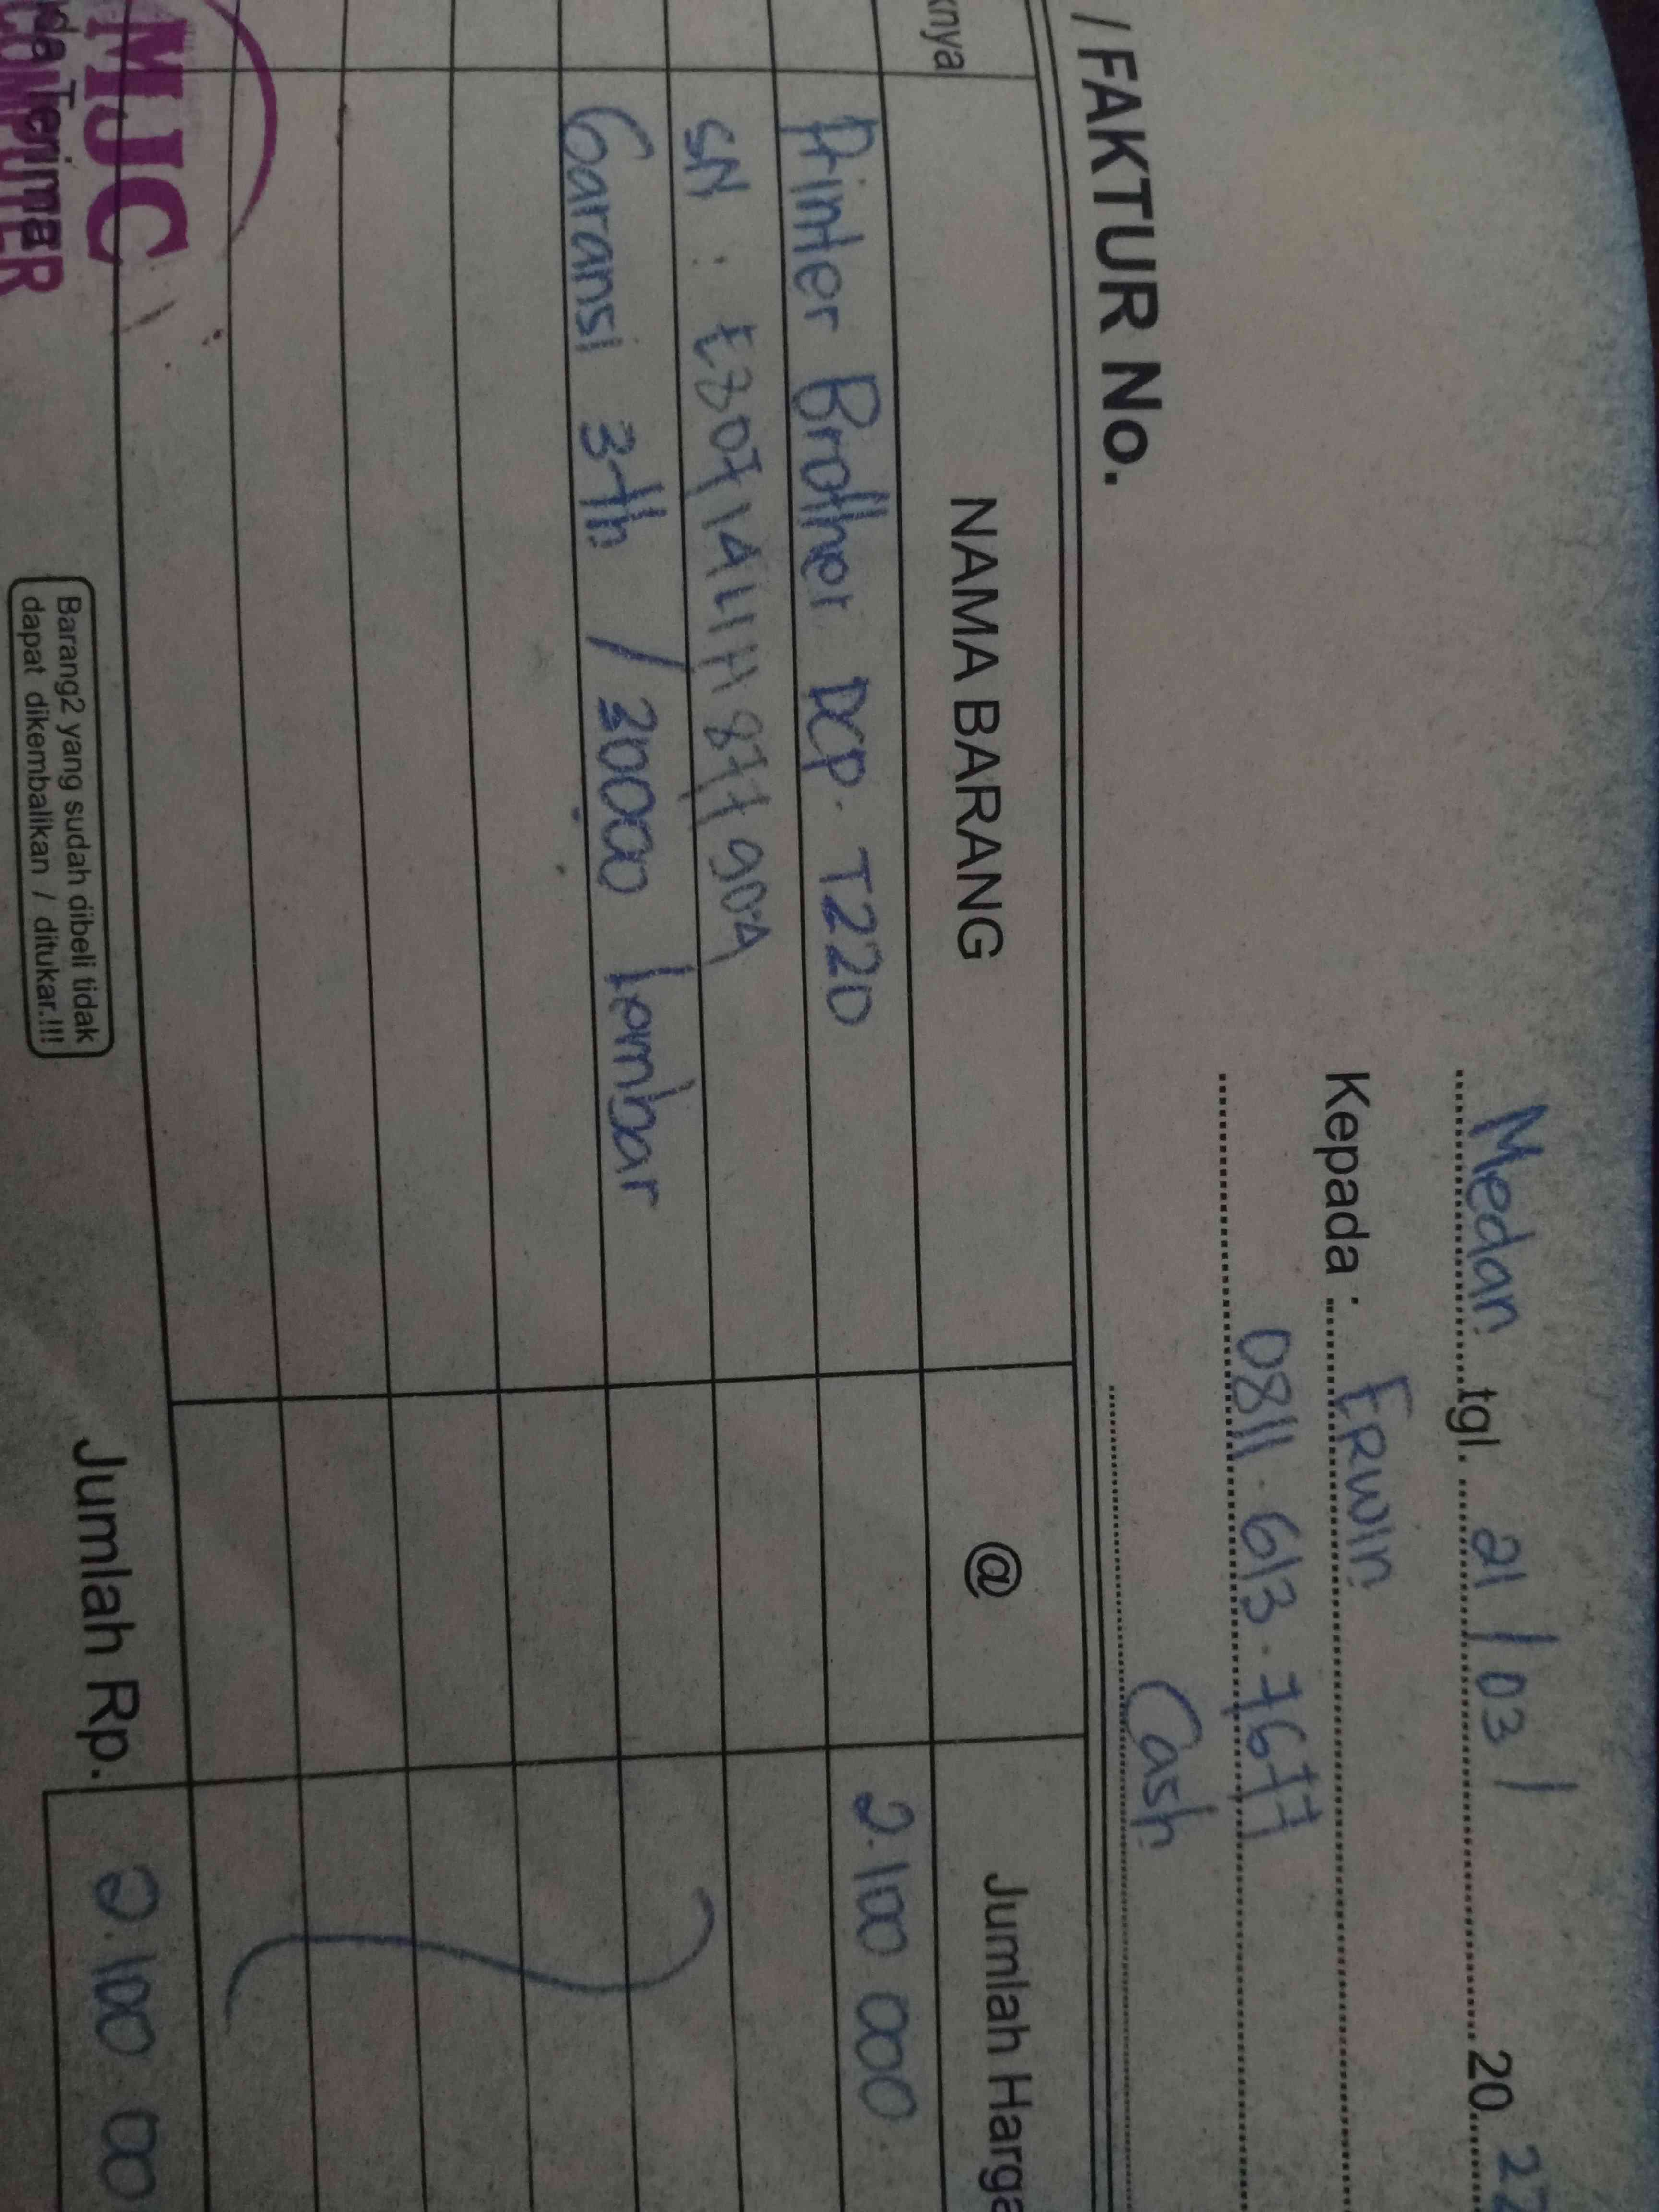 Medan tgl. 21 / 03 / 20 22
Kepada : Erwin
0811 . 613 . 7677
/ FAKTUR No.
Cash
knya NAMA BARANG @ Jumlah Harga
Printer Brother DCP. T220 2.100 000
SN :
Garansi 3 th / 20000 lembar
Jumlah Rp. 2.100 00
MJC
COMPUTER
da Terima
Barang2 yang sudah dibeli tidak
dapat dikembalikan / ditukar.!!!